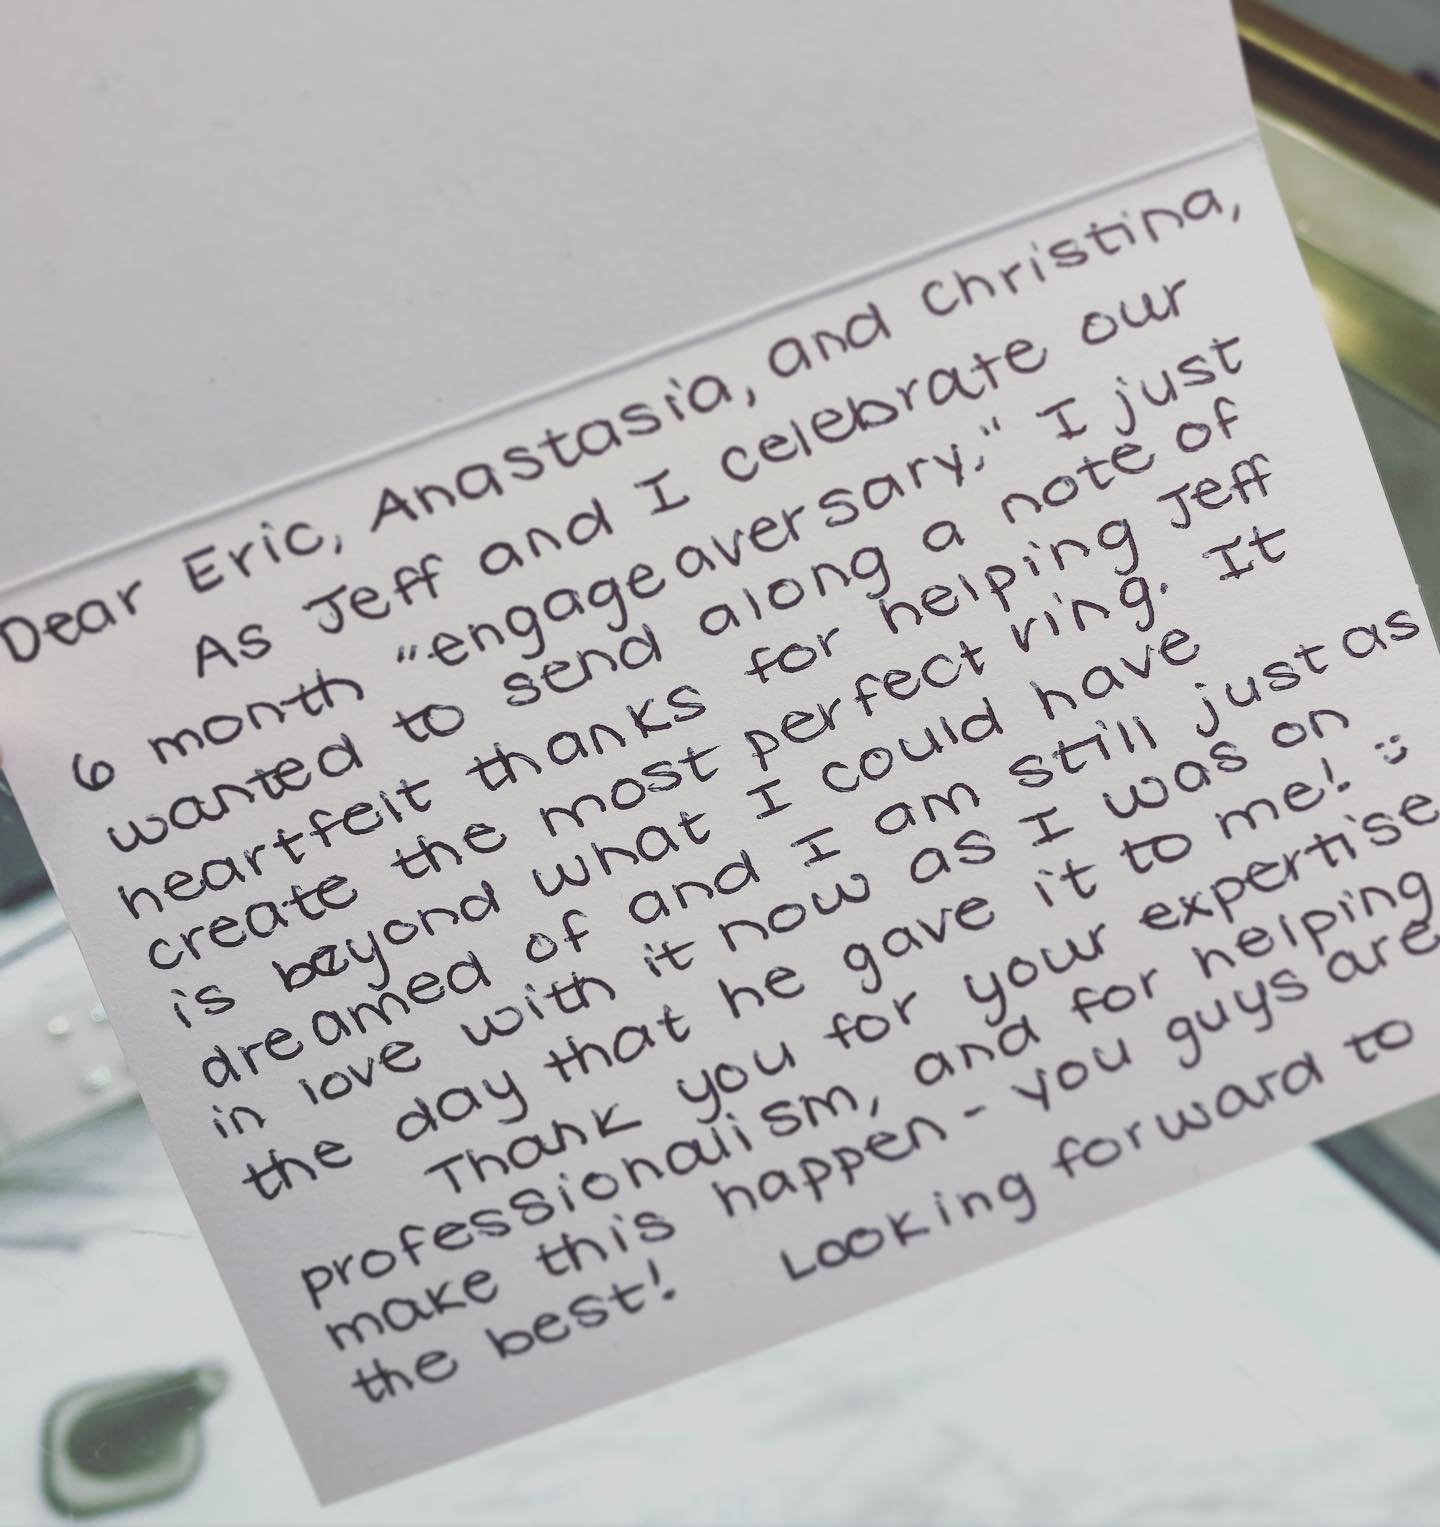 Dear Eric, Anastasia, and Christina,
As Jeff and I celebrate our
6 month "engageaversary," I just
wanted to send along a note of
heartfelt thanks for helping Jeff
create the most perfect ring. It
is beyond what I could have
dreamed of and I am still just as
in love with it now as I was on
the day that he gave it to me! :)
Thank you for your expertise
professionalism, and for helping
make this happen - you guys are
the best! Looking forward to